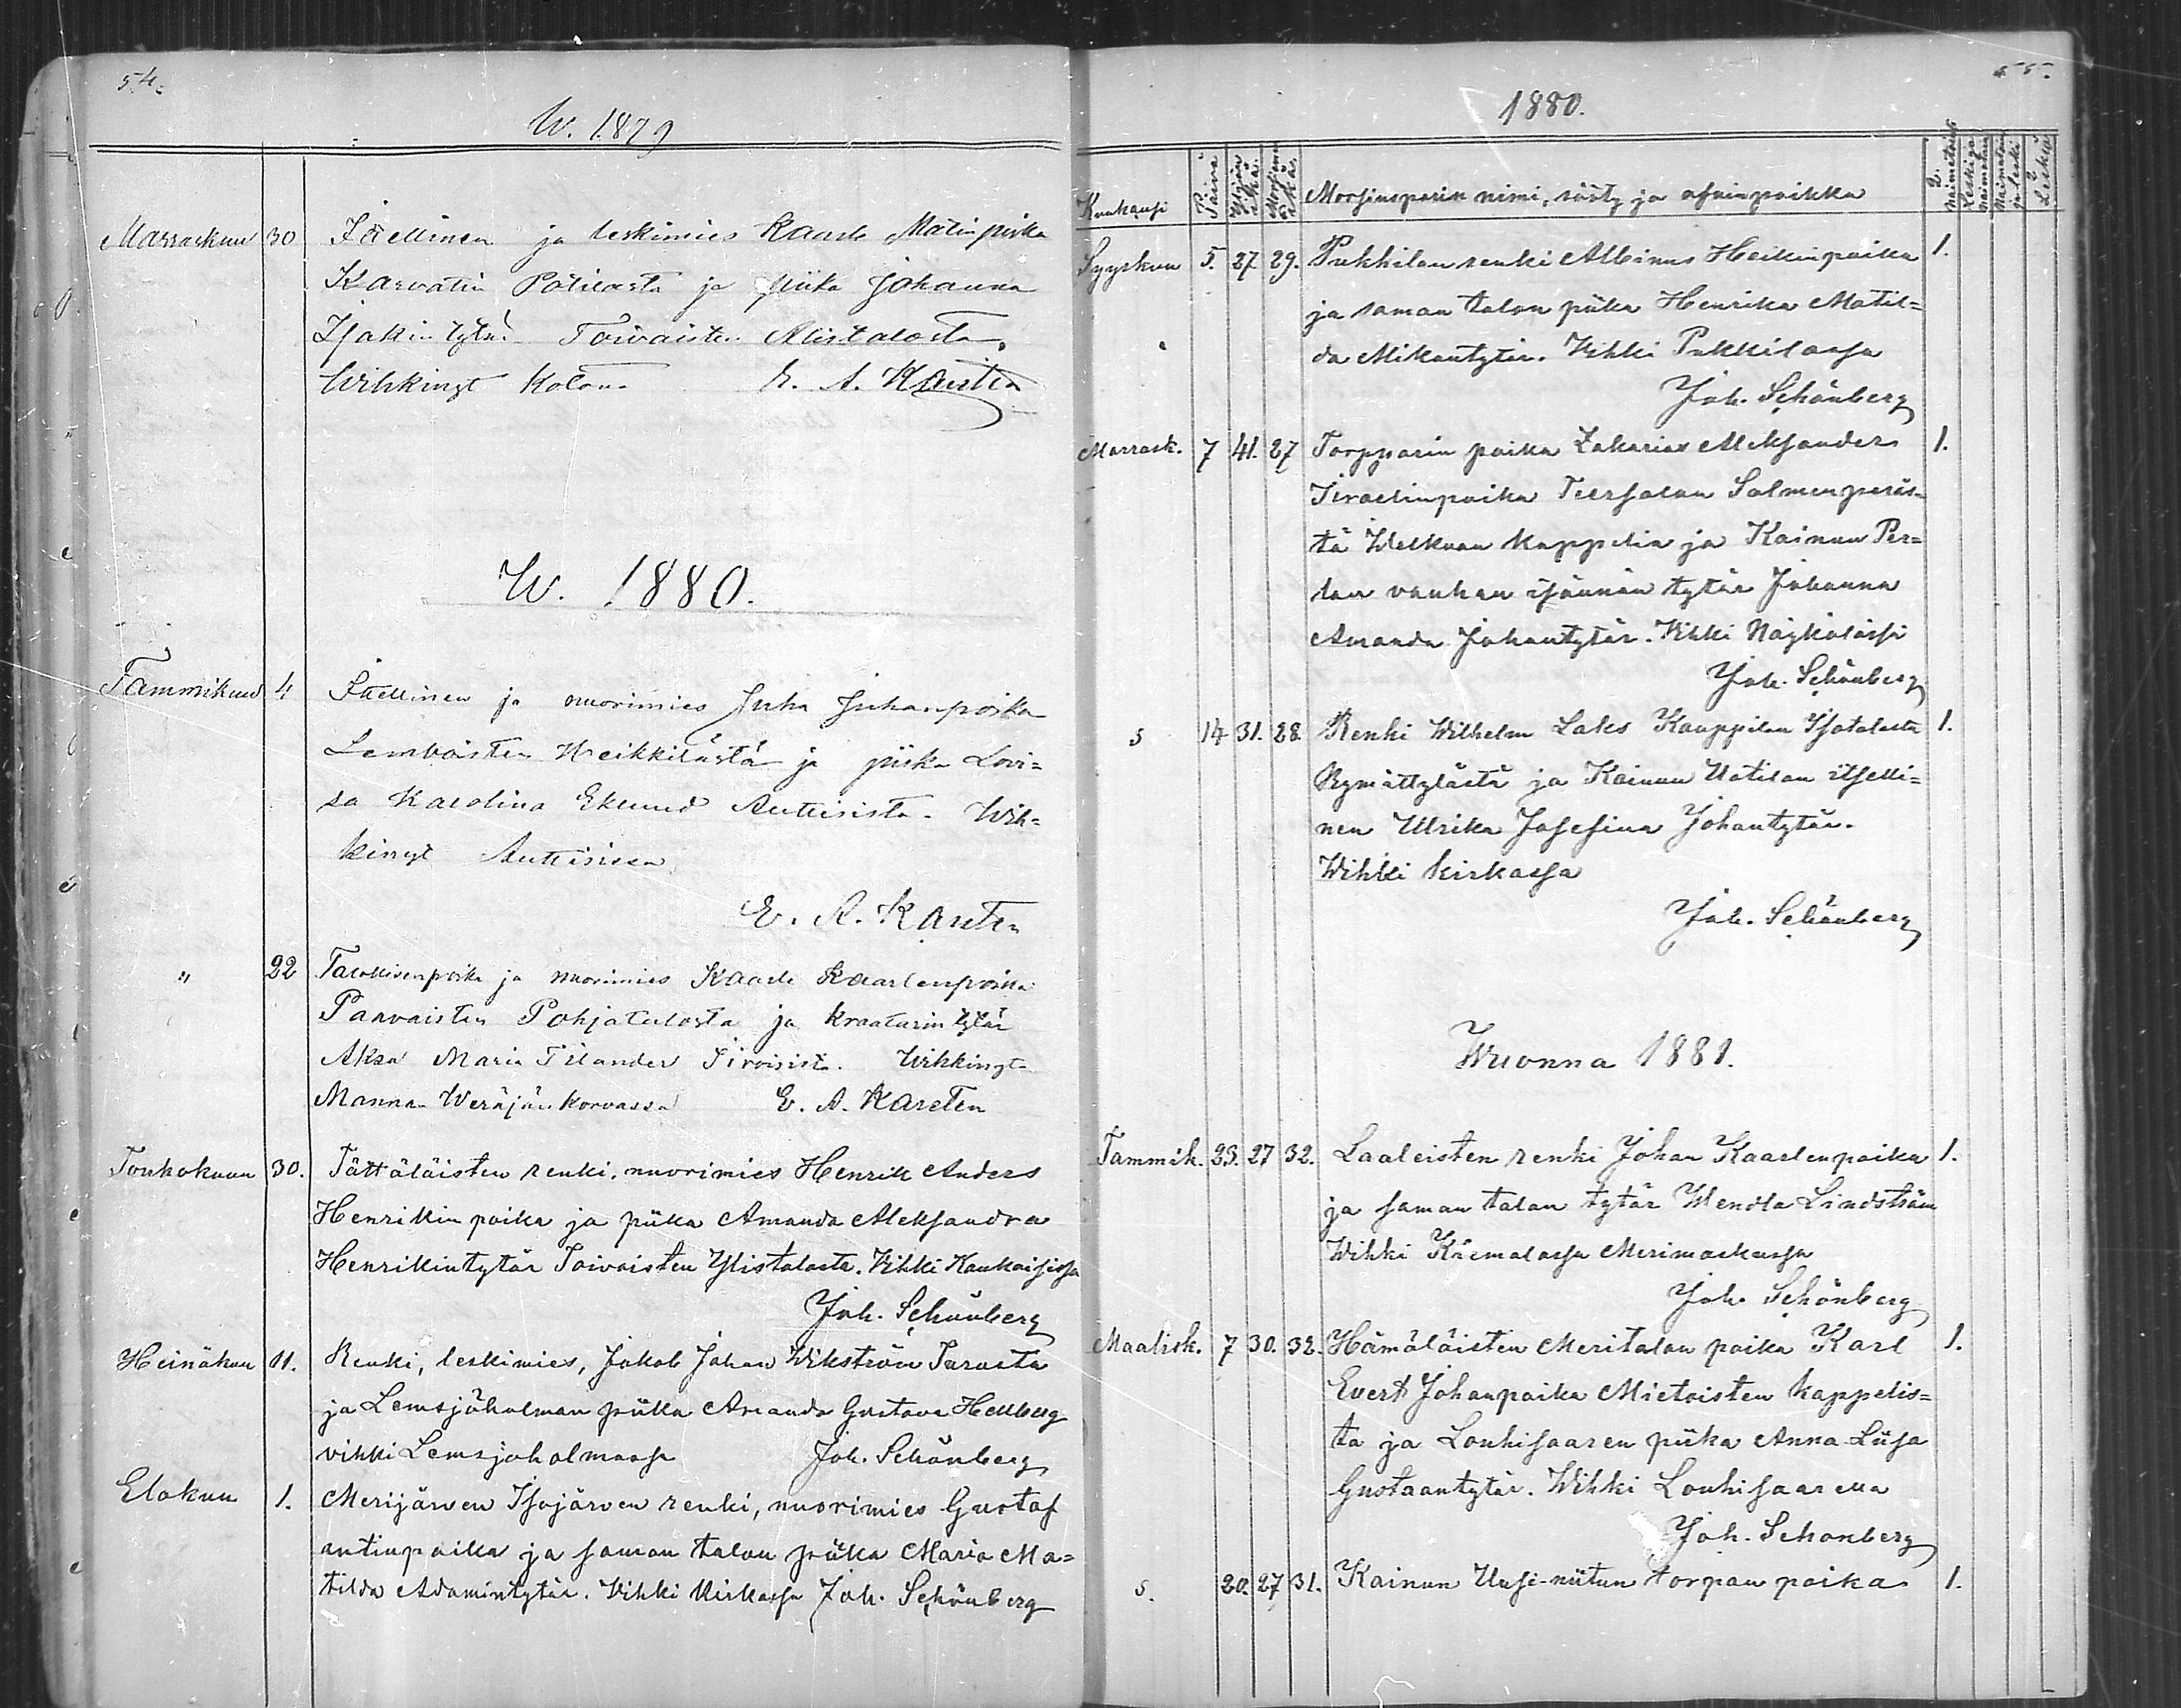 54.
W. 1879
Marraskuu 30 Itellinen ja leskimies Kaarle Matinpoika
Karvatin Pätilästä ja piika Johanna
Isakin tytär Toivaisten Alistalosta.
Wihkinyt Kolona E. A. Karsten
W. 1880.
Tammikuu 4 Itellinen ja nuorimies Juha Juhanpoika
Lemboisten Heikkilästä ja piika Lovi=
sa Karolina Eklund Anttisista. Wih=
kinyt Anttisissa
E. A. Karsten
" 22 Talollisenpoika ja nuorimies Kaarle Kaarlenpoika
Parvaisten Pohjatalosta ja kraatarin tytär
Aksa Maria Tilander Siroisista. Wihkinyt
Manna Weräjänkorvassa E. A. Karsten
Toukokuun 30. Tättäläisten renki, nuorimies Henrik Anders
Henrikin poika ja piika Amanda Aleksandra
Henrikintytär Toivaisten Ylistalosta. Vihki Kankaisissa
Joh. Schönberg
Heinäkuu 11. Renki, leskimies, Jakob Johan Wikström Turusta
ja Lemsjöholman piika Amanda Gustava Hellberg
vihki Lemsjöholmassa Joh. Schönberg
Elokuu 1. Merijärven Isojärven renki, nuorimies Gustaf
antinpoika ja saman talon piika Maria Ma=
tilda Adamintytär. Vihki Kirkossa Joh. Schönberg
55.
1880.
Kuukausi Päivä Yljän ikä. Morsiamen ikä. Morsiusparin nimi, sääty ja asuinpaikka 2. naimatointa Leski ja naimatoin Naimatoin ja leski 2 Leskeä
Syyskuu 5. 27 29. Pukkilan renki Albinus Heikinpoika 1.
ja saman talon piika Henrika Matil=
da Mikontytär. Vihki Pukkilassa
Joh. Schönberg
Marrask. 7 41. 27 Torpparin poika Zakarias Aleksander 1.
Israelinpoika Teersalon Salmenperäs=
tä Welkuan kappelia ja Kainun Per=
lan vanhan isännän tytär Johanna
Amanda Johantytär. Vihki Näykälässä
Joh. Schönberg
S 14 31. 28. Renki Wilhelm Laks Kauppilan Isotalosta 1.
Rymättylästä ja Kainun Uotilan itselli=
nen Ulrika Josefina Johantytär.
Wihki kirkossa
Joh. Schönberg
Wuonna 1881.
Tammik. 23. 27 32. Laaleisten renki Johan Kaarlenpoika 1.
ja saman talon tytär Wendla Lindström
Wihki Kaemalassa Merimaskussa
Joh. Schönberg
Maalisk. 7 30. 32. Hämäläisten Meritalon poika Karl 1.
Evert Johanpoika Mietoisten kappelis=
ta ja Louhisaaren piika Anna Liisa
Gustaantytär. Wihki Louhisaaressa
Joh. Schönberg
S. 20. 27 31. Kainun Uusi-niitun torpan poika 1.